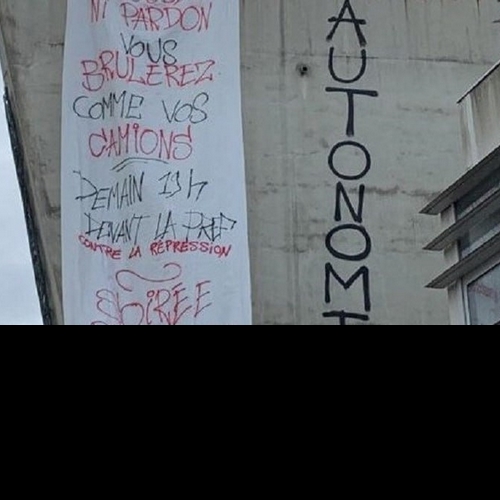 NI PARDON
VOUS
BRULEREZ
COMME VOS
CAMIONS
DEMAIN 19h
DEVANT LA PREF
CONTRE LA RÉPRESSION
SOIRÉE
AUTONOMI